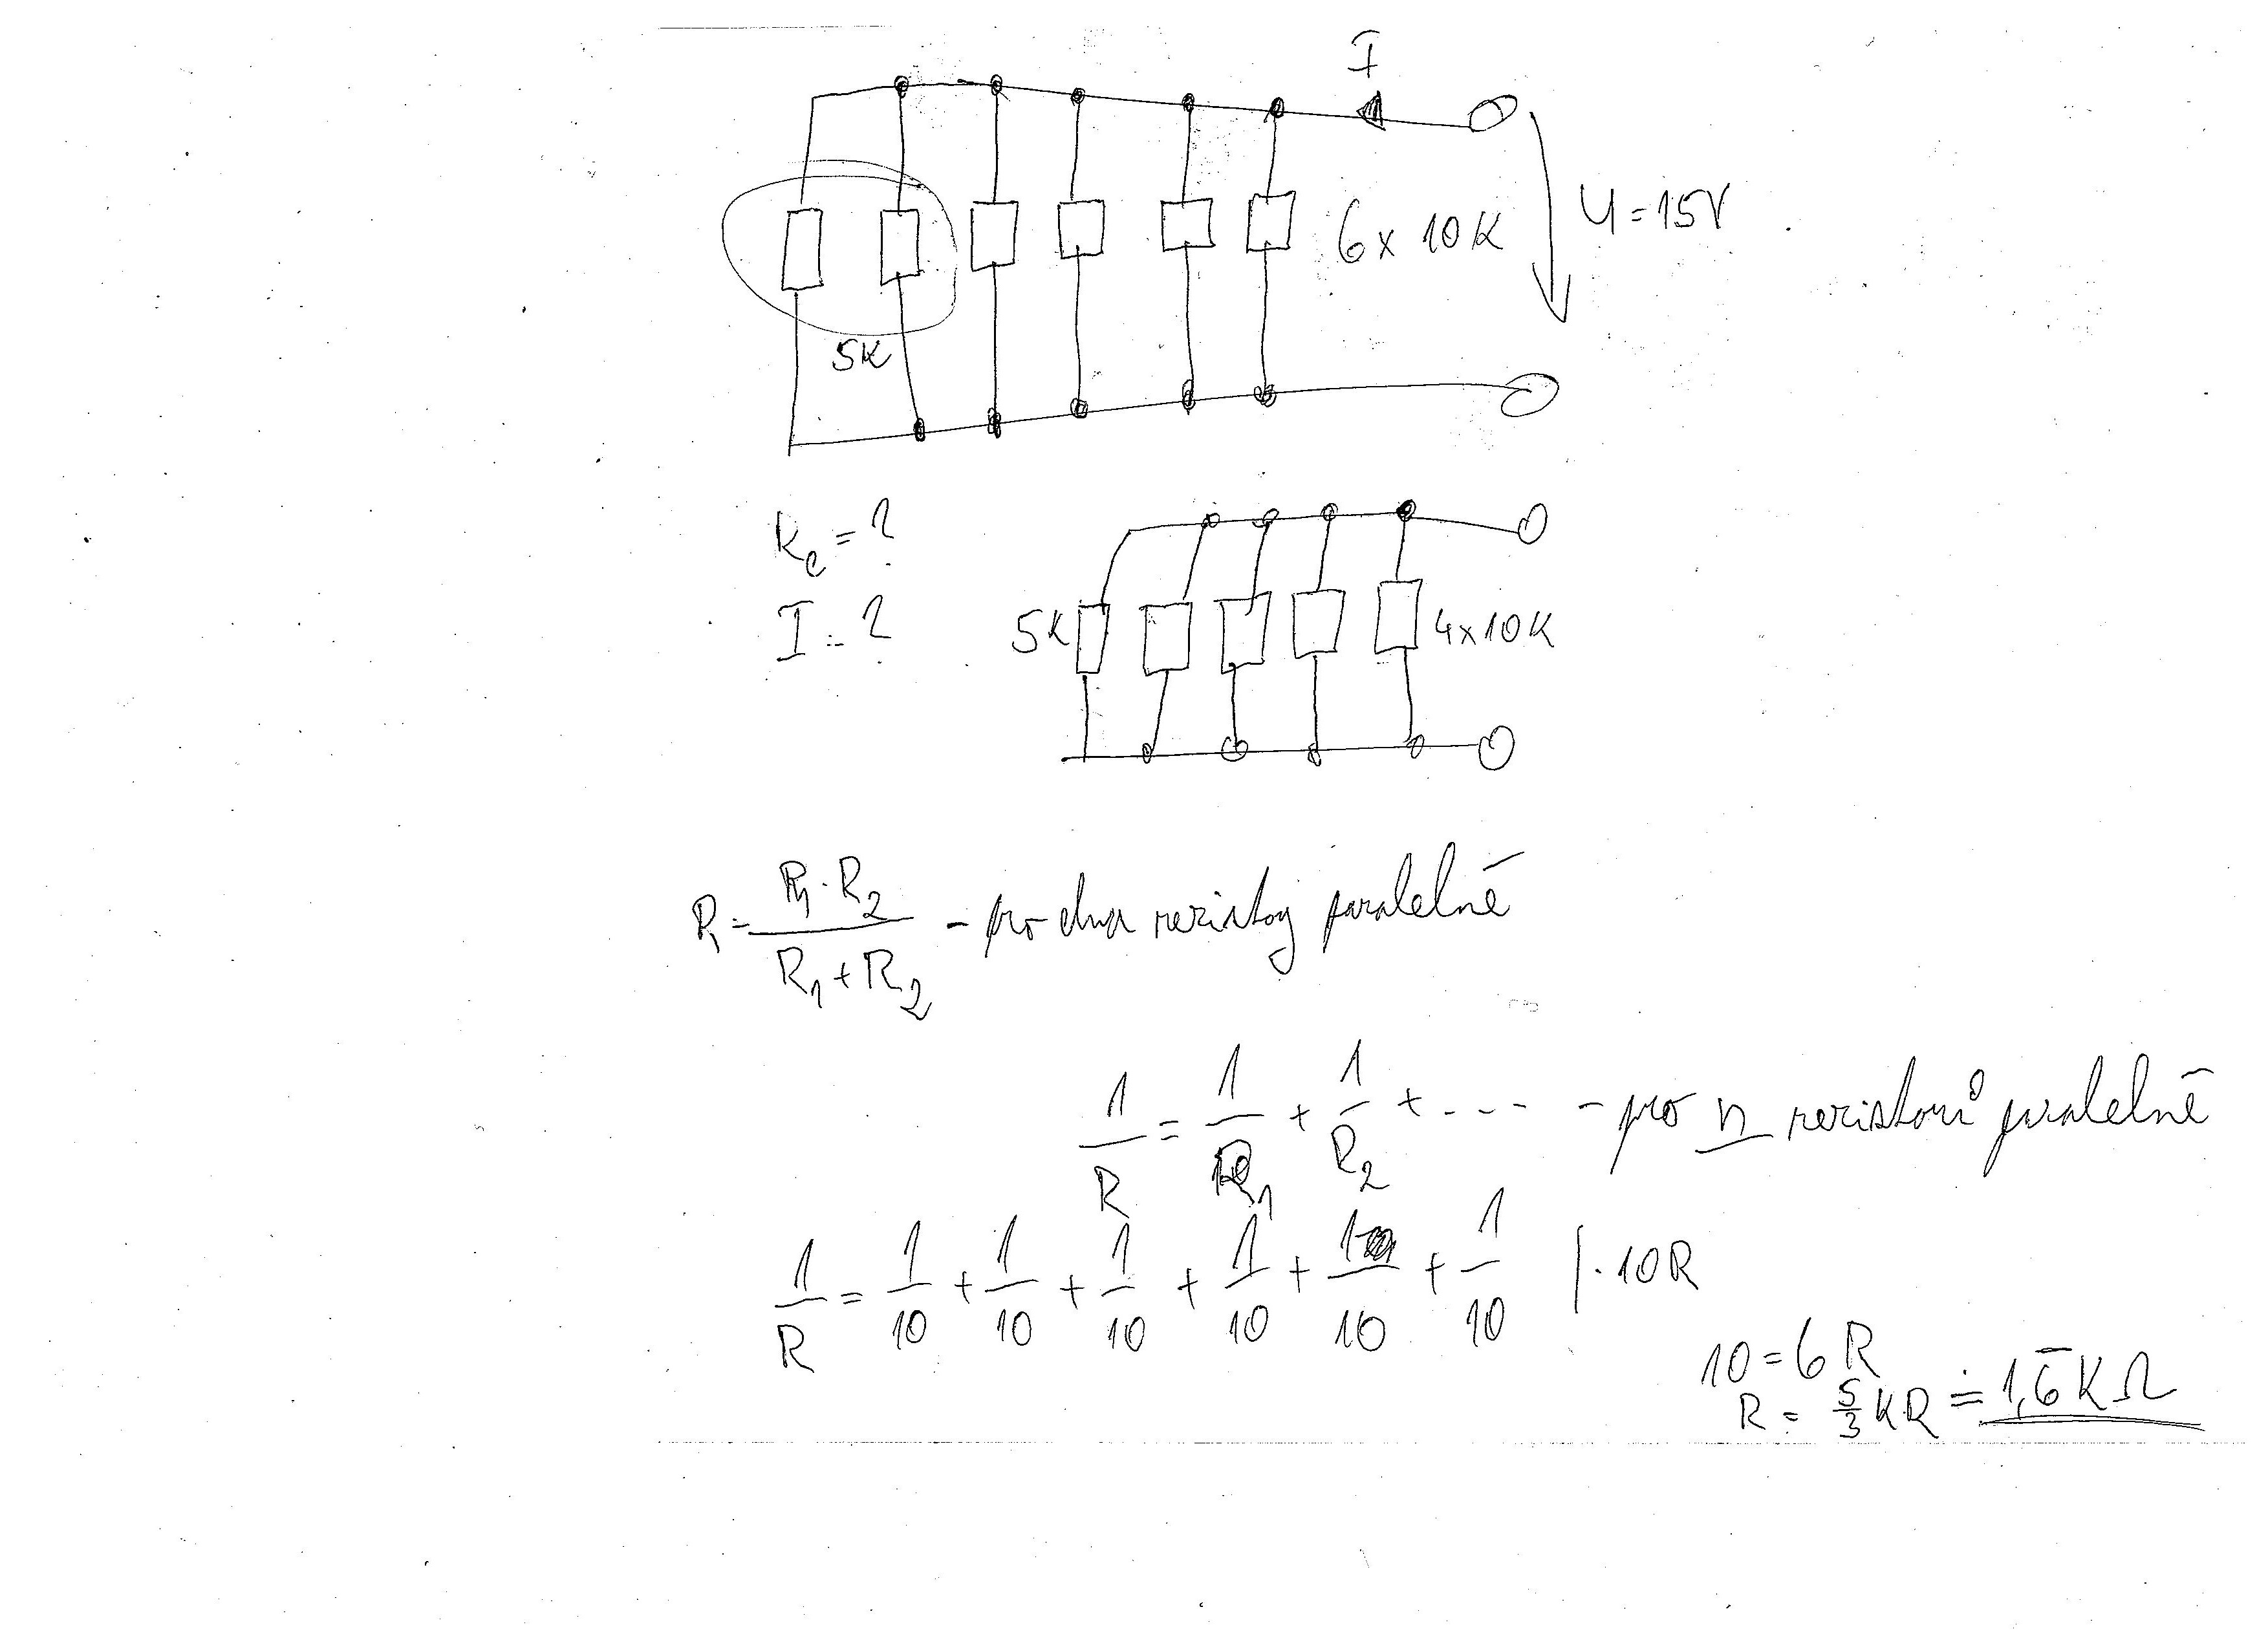 I
6x 10K
U=15V
5K
Rc = ?
I = ?
5K
4x10K
R = R1·R2 / R1+R2 - pro dva rezistory paralelně
1/R = 1/R1 + 1/R2 + .... - pro n rezistorů paralelně
1/R = 1/10 + 1/10 + 1/10 + 1/10 + 1/10 + 1/10 |·10R
10=6R
R = 5/3 KΩ ≐ 1,6̅ KΩ